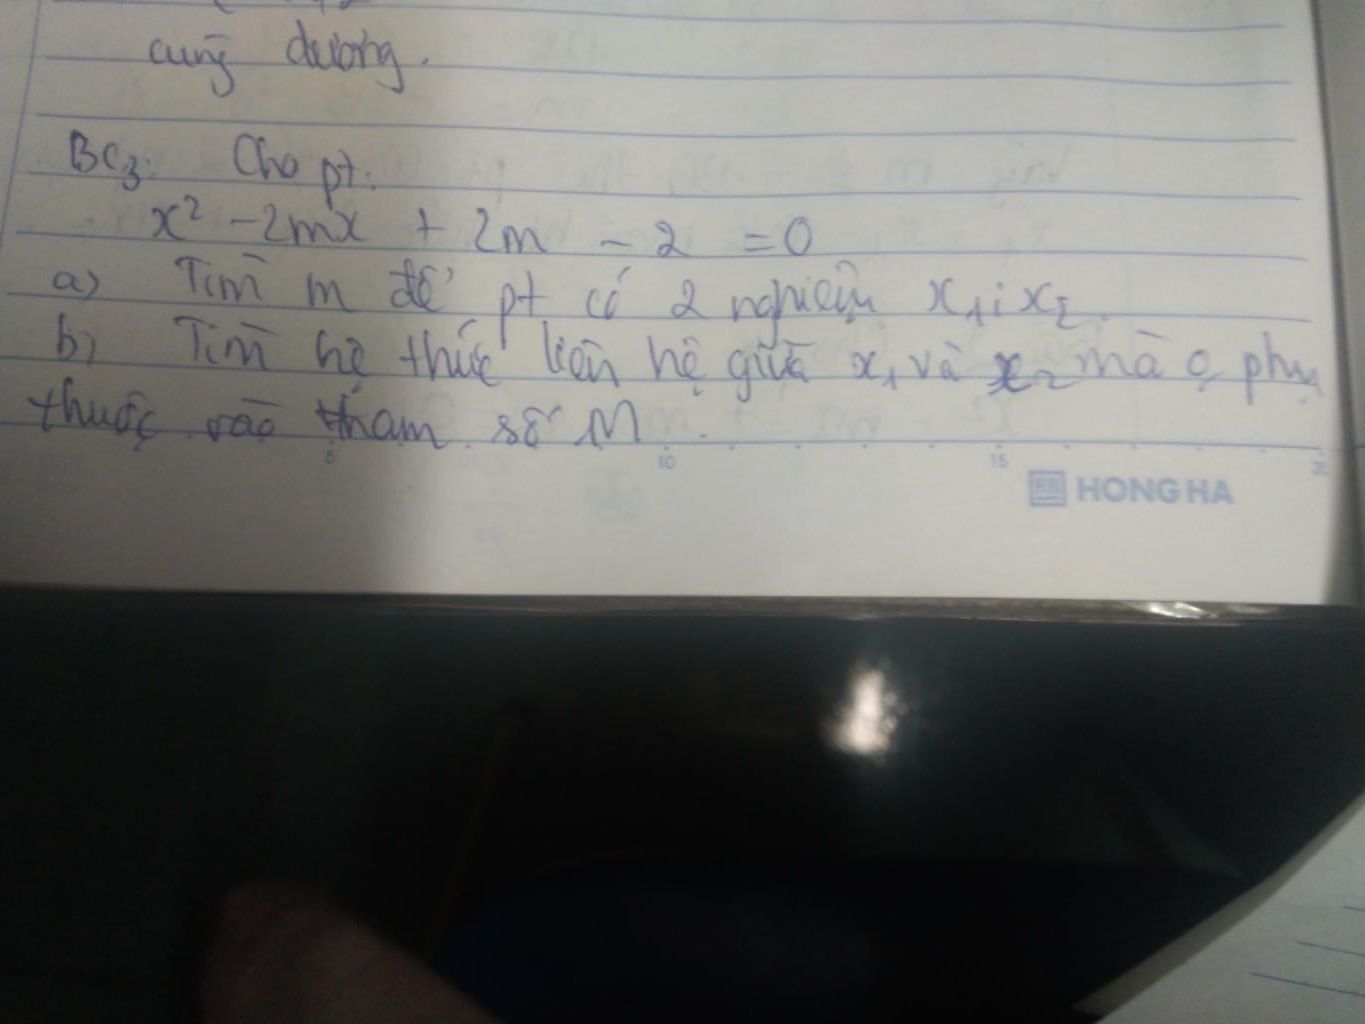 cùng dương.
BC3: Cho pt:
x² - 2mx + 2m - 2 = 0
a) Tìm m để pt có 2 nghiệm x₁; x₂.
b) Tìm hệ thức liên hệ giữa x₁ và x₂ mà o phụ
thuộc vào tham số M.
5 10 15 20
HONG HA